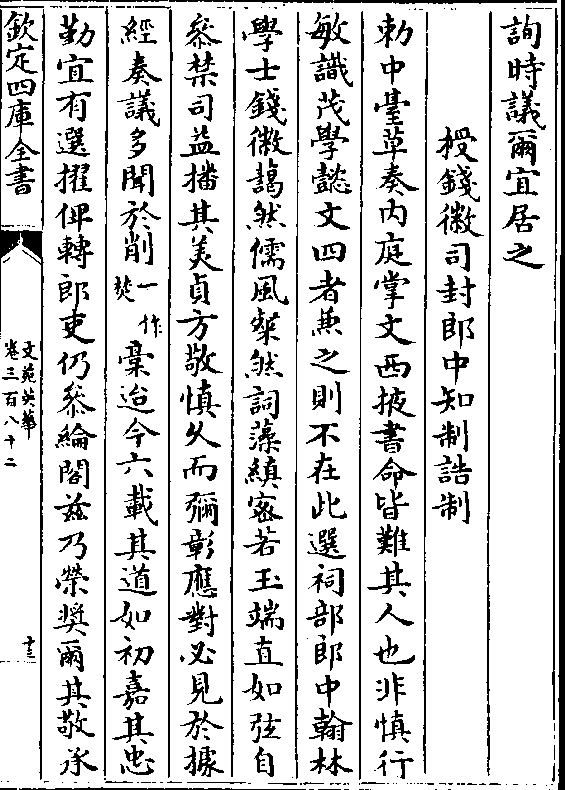 詢時議爾宜居之
授錢徽司封郎中知制誥制
勅中臺草奏内庭掌文西掖書命皆難其人也非慎行
敏識茂學懿文四者兼之則不在此選祠部郎中翰林
學士錢徽藹然儒風粲然詞藻縝宻若玉端直如弦自
叅禁司益播其美貞方敬慎久而彌彰應對必見於據
經奏議多聞於削一作焚稾迨今六載其道如初嘉其忠
勤宜有選擢俾轉郎吏仍叅綸閣兹乃榮奬爾其敬承
欽定四庫全書
文苑英華
卷三百八十二
十三